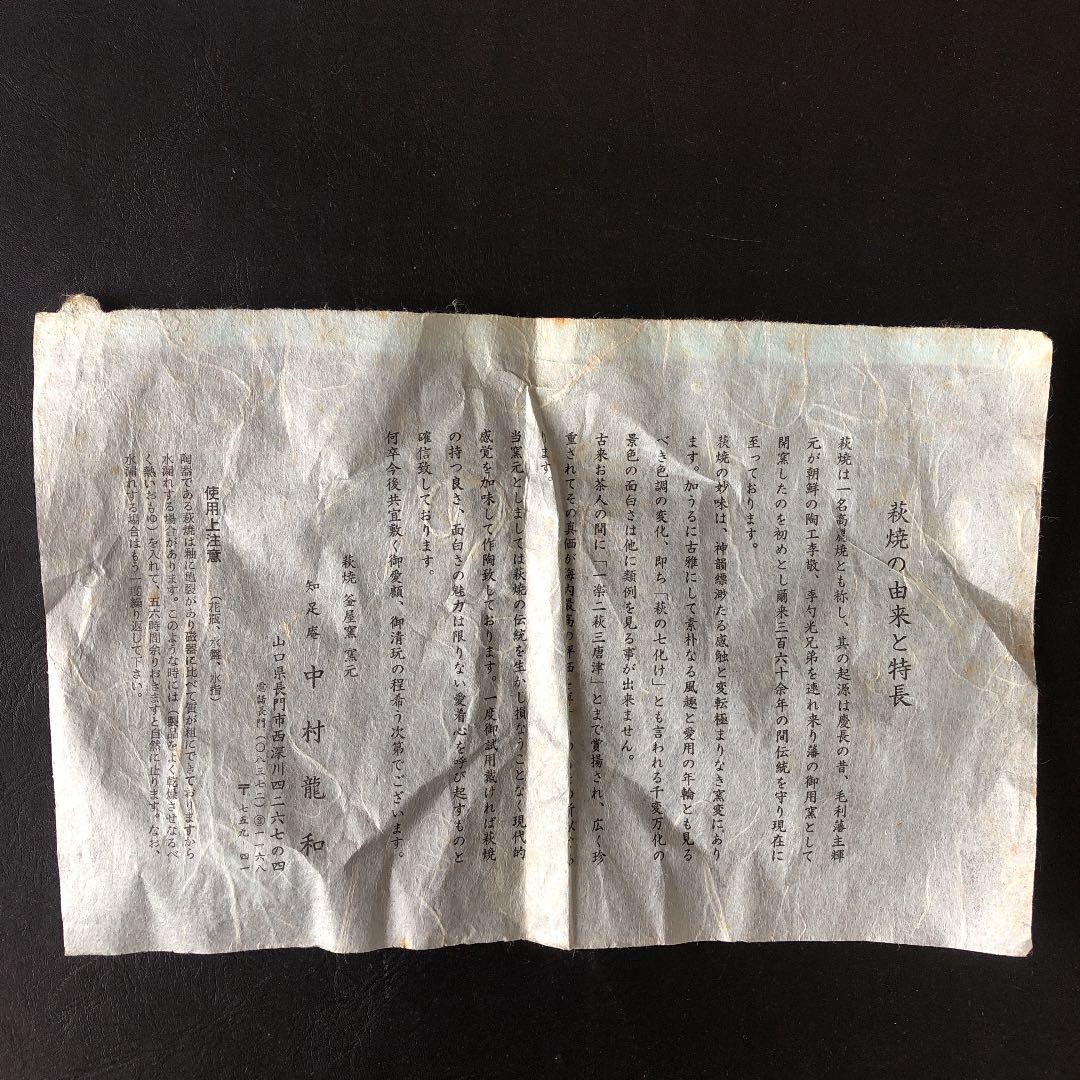 萩焼の由来と特長
萩焼は一名高麗焼とも称し、其の起源は慶長の昔、毛利藩主輝
元が朝鮮の陶工李敬、李勺光兄弟を連れ来り藩の御用窯として
開窯したのを初めとし爾来三百六十余年の間伝統を守り現在に
至っております。
萩焼の妙味は、神韻縹渺たる感触と変転極まりなき窯変にあり
ます。加うるに古雅にして素朴なる風趣と愛用の年輪とも見る
べき色調の変化、即ち「萩の七化け」とも言われる千変万化の
景色の面白さは他に類例を見る事が出来ません。
古来お茶人の間に「一楽二萩三唐津」とまで賞揚され、広く珍
重されてその真価が海内最高の評価
ます。
当窯元としましては萩焼の伝統を生かし損なうことなく現代的
感覚を加味して作陶致しております。一度御試用戴ければ萩焼
の持つ良さ、面白さの魅力は限りない愛着心を呼び起すものと
確信致しております。
何卒今後共宜敷く御愛顧、御清玩の程希う次第でございます。
萩焼 釜屋窯 窯元
知足庵 中村龍和
山口県長門市西深川四二六七の四
電話長門(〇八三七二)一一六八
〒七五九 四一
使用上注意 (花瓶、水盤、水指)
陶器である萩焼は釉に亀裂があり磁器に比べて質が粗にできておりますから
水漏れする場合があります。このような時には(製品をよく乾燥させなるべ
く熱いおもゆ)を入れて、五六時間余りおきますと自然に止ります。なお、
水漏れする場合はもう一度繰り返して下さい。